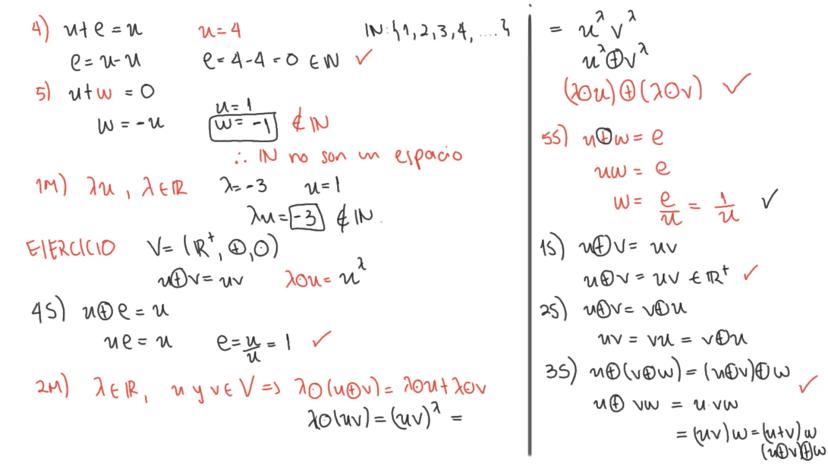 4) u+e=u u=4 IN:{1,2,3,4,....}
e=u-u e=4-4=0 ∈ IN ✓
5) u+w=0
w=-u u=1
w=-1 ∉ IN
∴ IN no son un espacio
1M) λu, λ∈IR λ=-3 u=1
λu=-3 ∉ IN.
EJERCICIO V=(IR⁺,⊕,⊙)
u⊕v=uv λ⊙u=u^λ
4S) u⊕e=u
ue=u e=u/u=1 ✓
2M) λ∈IR, u y v∈V => λ⊙(u⊕v)=λ⊙u+λ⊙v
λ⊙(uv)=(uv)^λ=
= u^λ v^λ
u^λ⊕v^λ
(λ⊙u)⊕(λ⊙v) ✓
5S) u⊕w=e
uw=e
w=e/u=1/u ✓
1S) u⊕v=uv
u⊕v=uv∈IR⁺ ✓
2S) u⊕v=v⊕u
uv=vu=v⊕u
3S) u⊕(v⊕w)=(u⊕v)⊕w ✓
u⊕ vw = u·vw
=(uv)w=(u+v)w
(u⊕v)⊕w